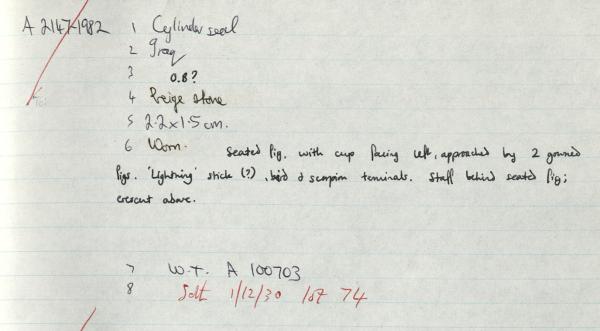 A 2147-1982 1 Cylinder seal
2 Iraq
3 O.B?
4 Beige stone
5 2.2x1.5 cm.
6 Worn. Seated fig. with cup facing left, approached by 2 gowned
figs. 'Lightning' stick (?), bird & scorpion terminals. Staff behind seated fig;
crescent above.
7 W.T. A 100703
8 Soth 1/12/30 lot 74